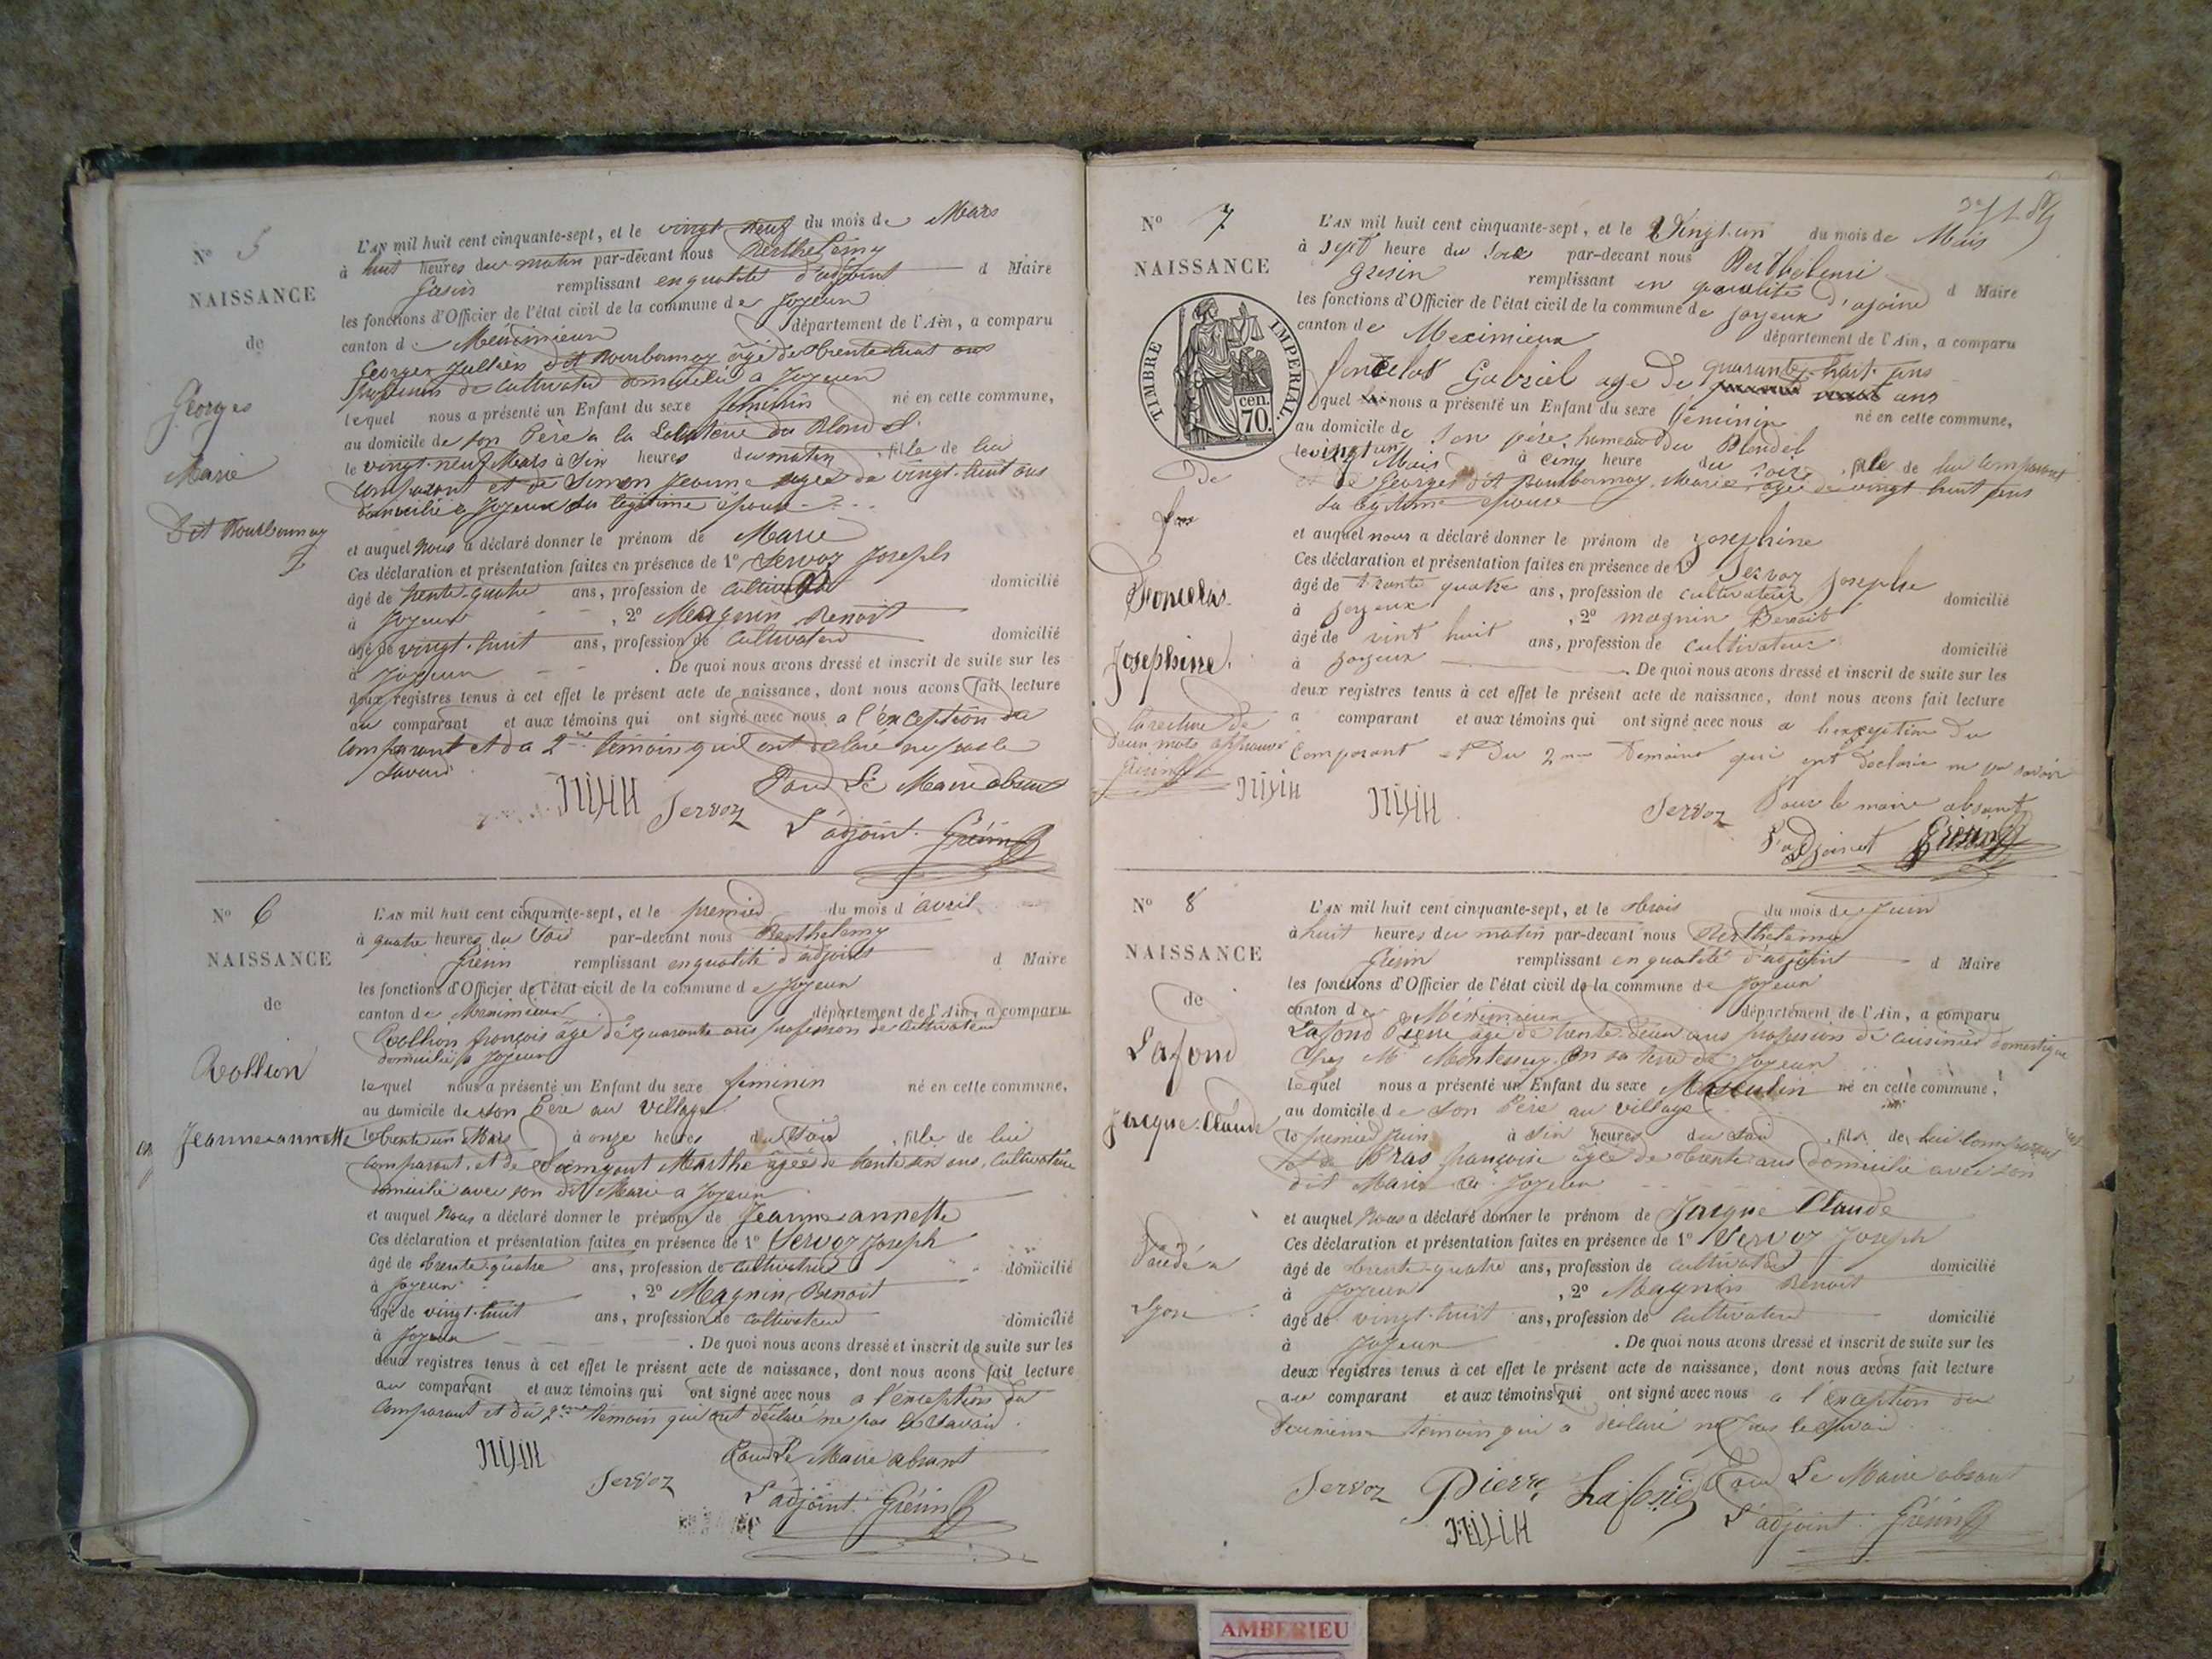 N° 5
NAISSANCE
de
Georges
Marie
Dit Bourbonnay
L'AN mil huit cent cinquante-sept, et le vingt neuf du mois de Mars
à huit heures du matin par-devant nous Berthelemy
remplissant en qualité d'adjoint d Maire
les fonctions d'Officier de l'état civil de la commune de Joyeux
canton de Meximieux département de l'Ain, a comparu
Georges Jullien dit Bourbonnay âgé de trente huit ans
profession de cultivateur domicilié à Joyeux
lequel nous a présenté un Enfant du sexe féminin né en cette commune,
au domicile de son Père a la du Blondel
le vingt-neuf Mars à six heures du matin, fille de lui
comparant et de Simon Jeanne agée de vingt-huit ans
domicilié à Joyeux sa légitime épouse
et auquel Nous a déclaré donner le prénom de Marie
Ces déclaration et présentation faites en présence de 1° Servoz Joseph
âgé de trente-quatre ans, profession de cultivateur domicilié
à Joyeux, 2° Magnin Benoit
âgé de vingt-huit ans, profession de cultivateur domicilié
à Joyeux. De quoi nous avons dressé et inscrit de suite sur les
deux registres tenus à cet effet le présent acte de naissance, dont nous avons fait lecture
au comparant et aux témoins qui ont signé avec nous a l'exception du
comparant et du 2me témoin qui ont déclaré ne pas le
savoir
Servoz Pour Le Maire absent
L'adjoint Grésin
N° 6
NAISSANCE
de
Rollion
Jeanneannette
L'AN mil huit cent cinquante-sept, et le premier du mois d'avril
à quatre heures du soir par-devant nous Berthelemy
Grésin remplissant en qualité d'adjoint d Maire
les fonctions d'Officier de l'état civil de la commune de Joyeux
canton de Meximieux département de l'Ain, a comparu
Rollion françois âgé de quarante ans profession de cultivateur
domicilié à Joyeux
lequel nous a présenté un Enfant du sexe féminin né en cette commune,
au domicile de son Père au village
le trente un Mars à onze heures du soir, fille de lui
comparant, et de Marthe âgée de trente six ans, cultivatrice
domicilié avec son dit Marie a Joyeux
et auquel Nous a déclaré donner le prénom de Jeanneannette
Ces déclaration et présentation faites en présence de 1° Servoz Joseph
âgé de trente-quatre ans, profession de cultivateur domicilié
à Joyeux, 2° Magnin Benoit
âgé de vingt-huit ans, profession de cultivateur domicilié
à Joyeux. De quoi nous avons dressé et inscrit de suite sur les
deux registres tenus à cet effet le présent acte de naissance, dont nous avons fait lecture
au comparant et aux témoins qui ont signé avec nous a l'exception du
comparant et du 2eme témoin qui ont déclaré ne pas le savoir.
Pour Le Maire absent
Servoz L'adjoint Grésin
N° 7
NAISSANCE
TIMBRE IMPERIAL.
cen.
70.
De
Foncelas
Josephine
deux mots approuvé
Grésin
L'AN mil huit cent cinquante-sept, et le Vingt-un du mois de Mais
à sept heure du soir par-devant nous Berthelemi
Gresin remplissant en qualité d'ajoint d Maire
les fonctions d'Officier de l'état civil de la commune de joyeux
canton de Meximieux département de l'Ain, a comparu
foncelas Gabriel age de quarante-huit ans
ans
lequel nous a présenté un Enfant du sexe féminin né en cette commune,
au domicile de son père hameau du Blondel
le vingt un Mais à cinq heure du soir, fille de lui comparant
et de Georges dit bourbonnay Marie agée de vingt huit ans
sa légitime épouse
et auquel nous a déclaré donner le prénom de josephine
Ces déclaration et présentation faites en présence de 1° Servoz Josephe
âgé de trante quatre ans, profession de cultivateur domicilié
à joyeux, 2° magnin Benoit
âgé de vint huit ans, profession de cultivateur domicilié
à joyeux. De quoi nous avons dressé et inscrit de suite sur les
deux registres tenus à cet effet le présent acte de naissance, dont nous avons fait lecture
a comparant et aux témoins qui ont signé avec nous a l'exception du
comparant et Du 2me Temoins qui ont declarée ne pas savoir
Servoz Pour le maire absent
L'adjoinet Grésin
N° 8
NAISSANCE
de
Lafond
Jacque-Claude
Lyon
L'AN mil huit cent cinquante-sept, et le trois du mois de Juin
à huit heures du matin par-devant nous Berthelemy
Grésin remplissant en qualité d'adjoint d Maire
les fonctions d'Officier de l'état civil de la commune de Joyeux
canton de Méximieux département de l'Ain, a comparu
Lafond Pierre âgé de trente-deux ans profession de cuisinier domestique
chez Mr Montessuy en sa terre de Joyeux
lequel nous a présenté un Enfant du sexe Masculin né en cette commune,
au domicile de son Père au village
le premier Juin à six heures du soir, fils de lui comparant
et de Bras françoise âgée de trente ans domicilié avec son
dit Marie à Joyeux
et auquel Nous a déclaré donner le prénom de Jacque Claude
Ces déclaration et présentation faites en présence de 1° Servoz Joseph
âgé de trente-quatre ans, profession de cultivateur domicilié
à Joyeux, 2° Magnin Benoit
âgé de vingt-huit ans, profession de cultivateur domicilié
à Joyeux. De quoi nous avons dressé et inscrit de suite sur les
deux registres tenus à cet effet le présent acte de naissance, dont nous avons fait lecture
au comparant et aux témoins qui ont signé avec nous a l'exception du
deuxième témoin qui a déclaré ne pas le savoir
Servoz Pierre Lafond Pour Le Maire absent
L'adjoint Grésin
AMBERIEU